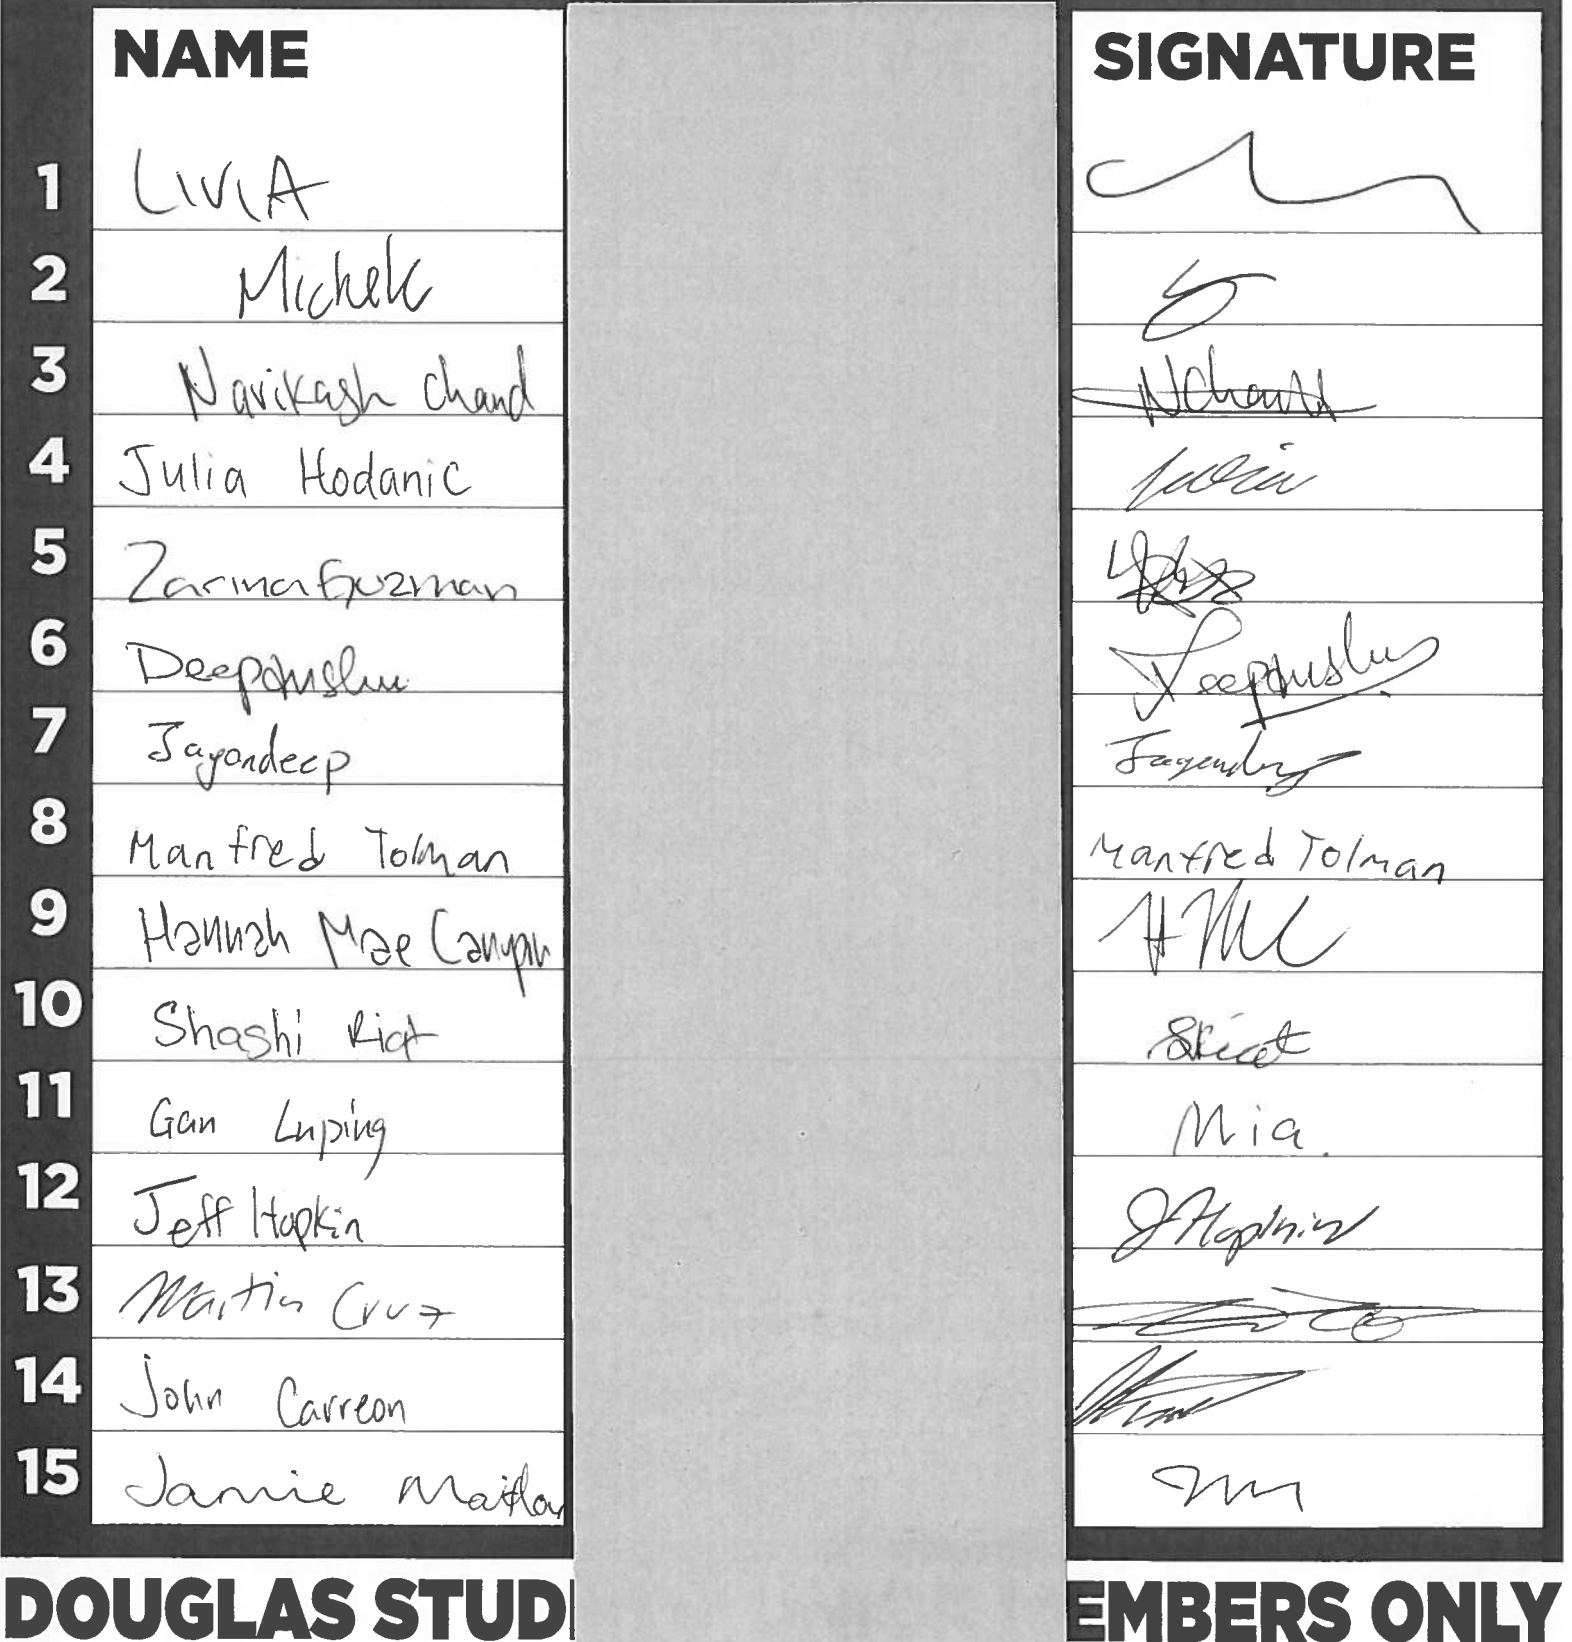 NAME SIGNATURE
1 LIVIA
2 Michele
3 Navikash Chand NChand
4 Julia Hodanic Julia
5 Zarina Guzman
6 Deepanshu Deepanshu
7 Jagandeep
8 Manfred Tolman Manfred Tolman
9 Hannah Mae HMC
10 Shashi Riat SRiat
11 Gan Luping Mia
12 Jeff Hopkin JHopkin
13 Martin Cruz
14 John Carreon
15 Jamie
DOUGLAS STUD EMBERS ONLY